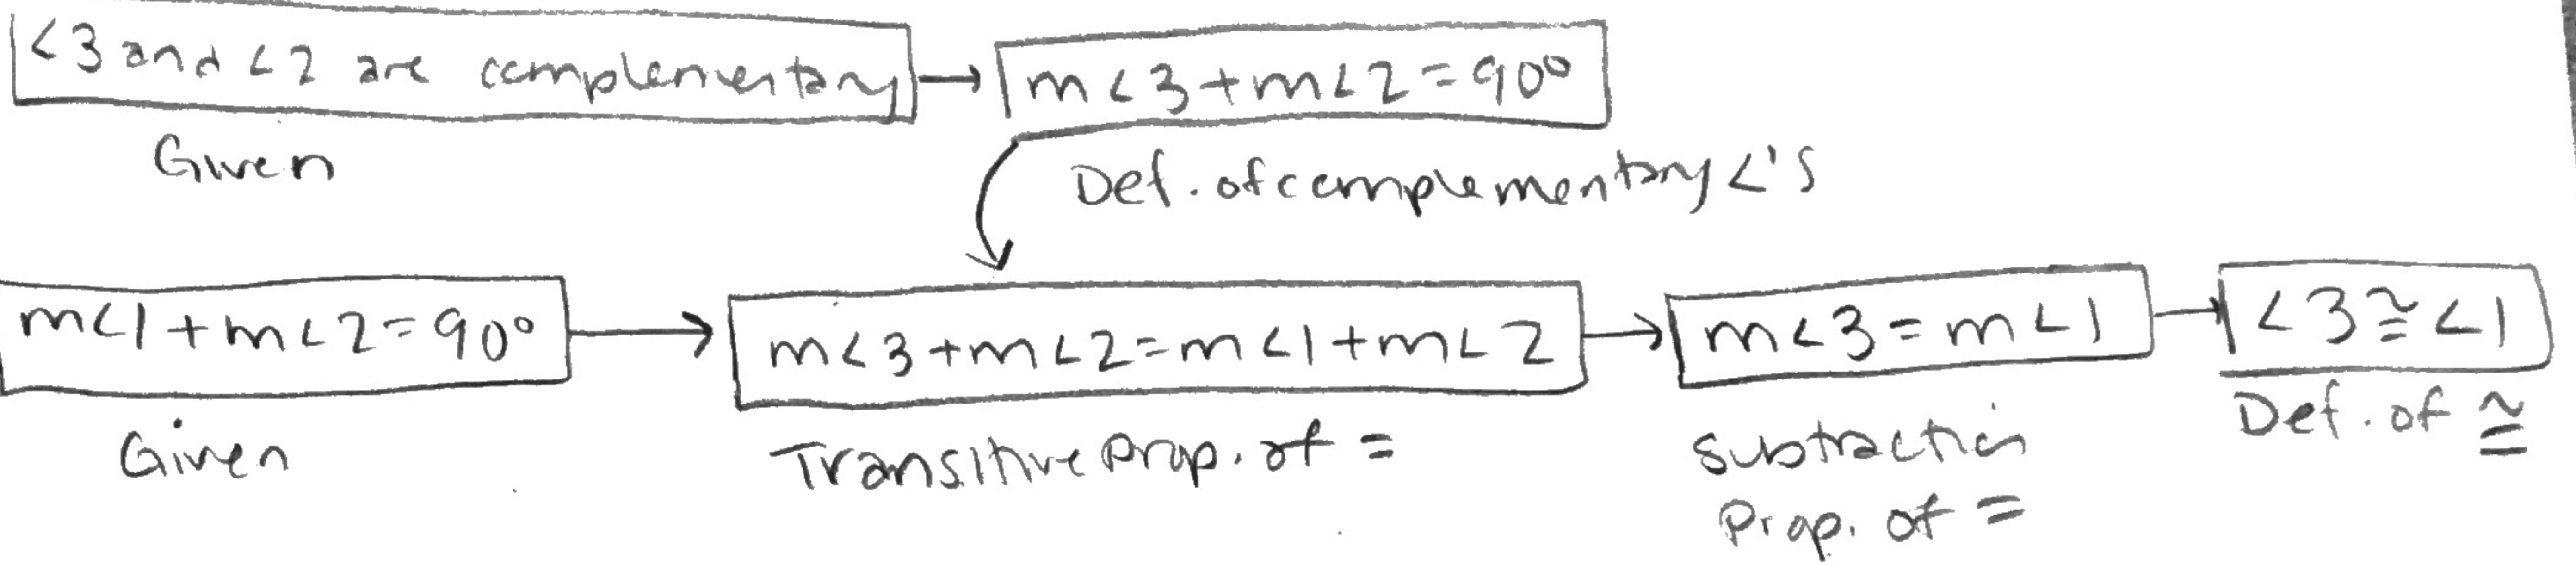 <3 and <2 are complementary → m<3+m<2=90°
Given
Def. of complementary <'s
m<1+m<2=90° → m<3+m<2=m<1+m<2 → m<3=m<1 → <3≅<1
Given
Transitive Prop. of =
Subtraction
Prop. of =
Def. of ≅